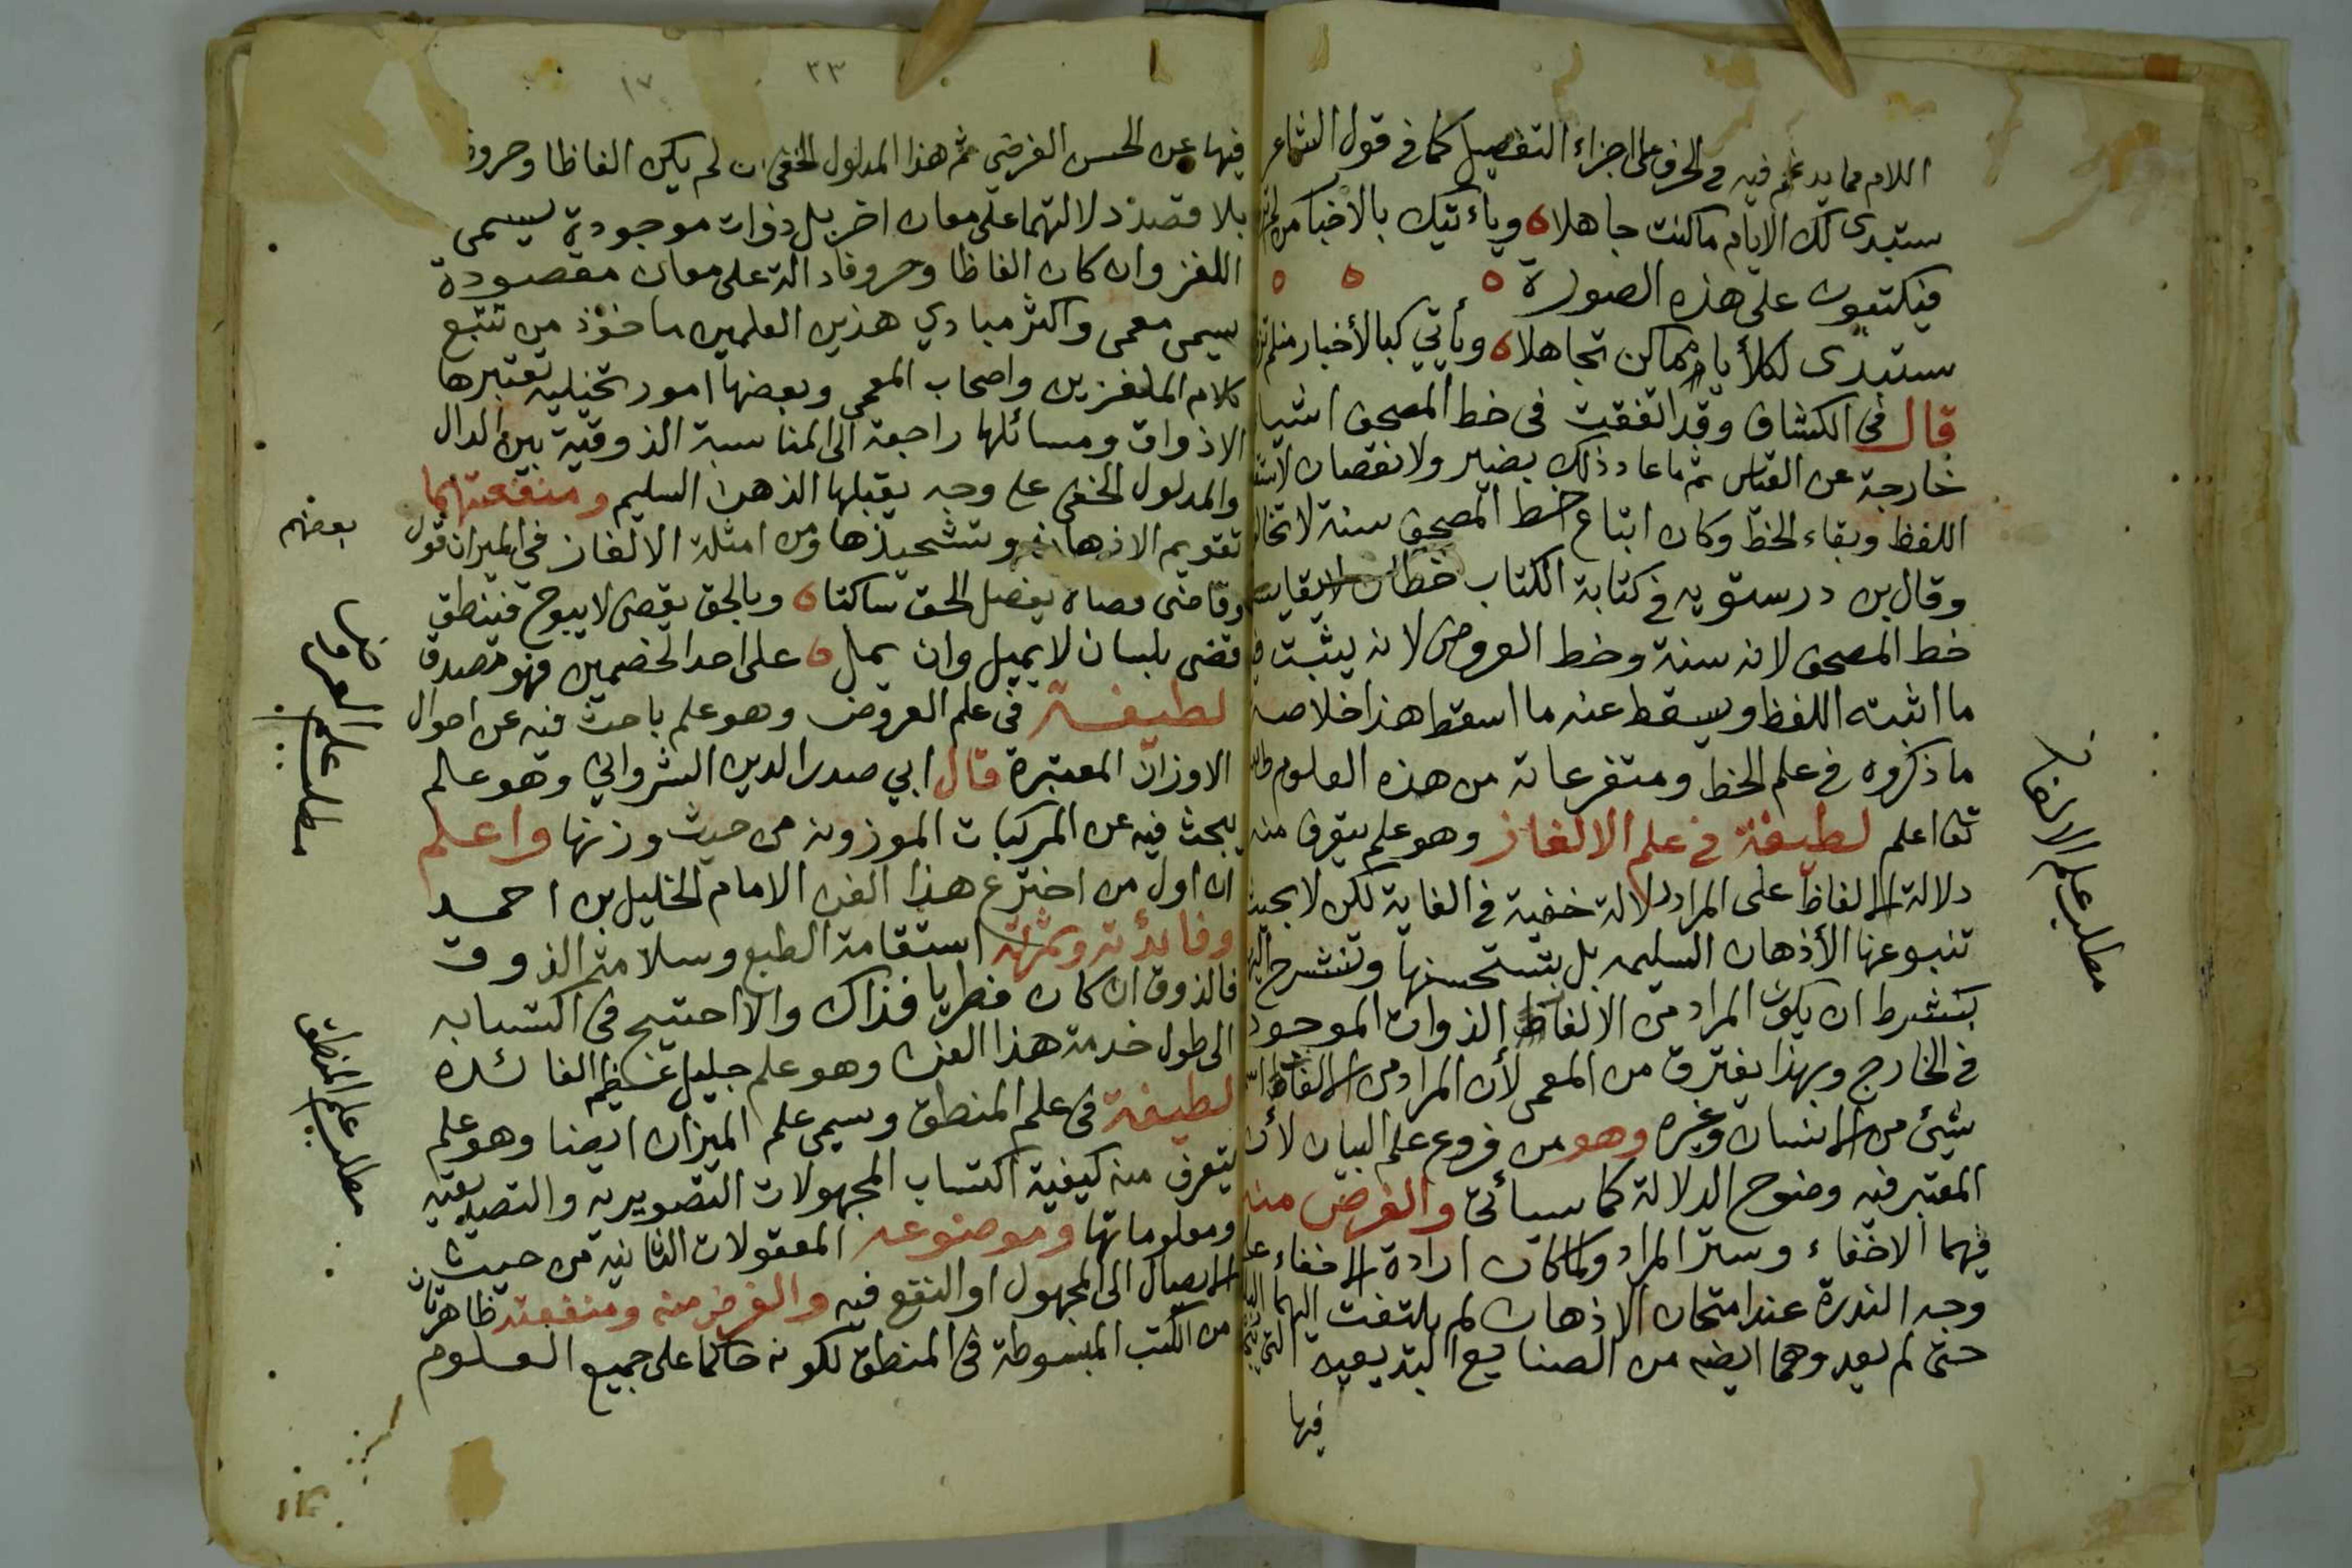 اللام مما يدغم فيه في الحرف على اجزاء التفصيل كما في قول الشاعر
ستبدى لك الايام ماكنت جاهلا ه وياءتيك بالاخبار من لم
فيكتبون على هذه الصورة ه ه ه
ستبدى لكلأيا مماكن تجاهلا ه ويأتي كبالأخبار منلم تز
قال في الكشاف وقد اتفقت فى خط المصحف اشيا
خارجة عن القياس ثم ما عاد ذلك بضير ولا نقصان لاستقا
اللفظ وبقاء الخط وكان اتباع خط المصحف سنة لا تخالف
وقال بن درستويه في كتابة الكتاب خطان لا يقاس
خط المصحف لانه سنة وخط العروض لانه يثبت فيه
ما اثبته اللفظ ويسقط عنه ما اسقط هذا خلاصة
ما ذكروه في علم الخط ومتفرعاته من هذه العلوم والله
تعا اعلم لطيفة في علم الالغاز وهو علم يتعرف منه
دلالة الالفاظ على المراد دلالة خفية في الغاية لكن لا بحيث
تنبو عنها الأذهان السليمه بل تستحسنها وتنشرح اليها
بشرط ان يكون المراد من الالفاظ الذوات الموجود
في الخارج وبهذا يفترق من المعمى لأن المراد من الالفاظ اسم
شئ من الانسان وغيره وهو من فروع علم البيان لأن
المعتبر فيه وضوح الدلالة كما سيأتى والغرض منه
فيهما الاخفاء وستر المراد ولما كان ارادة الاخفاء على
وجه الندرة عند امتحان الاذهان لم يلتفت اليهما البلغا
حتى لم يعد وهما ايضه من الصنايع البديعيه التي
فيها
مطلب علم الالغاز
٣٣
١٧
فيها عن الحسن العرضي ثم هذا المدلول الخفي ان لم يكن الفاظا وحروفا
بلا قصد دلالتهما على معان اخر بل ذوات موجودة يسمى
اللغز وان كان الفاظا وحروفا دالة على معان مقصودة
سيمى معمى واكثر مبادي هذين العلمين ماخوذ من تتبع
كلام الملغزين واصحاب المعمى وبعضها امور تخيلية تعتبرها
الاذواق ومسائلها راجعة الى المناسبة الذوقية بين الدال
والمدلول الخفى على وجه يقبلها الذهن السليم ومنفعتهما
تقويم الاذهان وتشحيذها ومن امثلة الالغاز في الميزان قول
بعضهم
وقاضى قضاة يفصل الحق ساكتا ه وبالحق يقضى لا يبوح فينطق
قضى بلسان لا يميل وان يمل ه على احد الخصمين فهو مصدق
لطيفة فى علم العروض وهو علم باحث فيه عن احوال
الاوزان المعتبرة قال ابي صدر الدين الشرواني وهو علم
يبحث فيه عن المركبات الموزونه من حيث وزنها واعلم
ان اول من اخترع هذا الفن الامام الخليل بن احمد
وفائدته وثمرته استقامة الطبع وسلامة الذوق
فالذوق ان كان فطريا فذاك والا احتيج فى اكتسابه
الى طول خدمة هذا الفن وهو علم جليل عظيم الفائده
لطيفة فى علم المنطق وسيمى علم الميزان ايضا وهو علم
يتعرف منه كيفية اكتساب المجهولات التصويريه والتصديقيه
ومعلوماتها وموضوعه المعقولات الثانيه من حيث
الايصال الى المجهول او النفع فيه والغرض منه ومنفعته ظاهرتان
من الكتب المبسوطة فى المنطق لكونه حاكما على جميع العلوم
مطلب علم العروض
مطلب علم المنطق